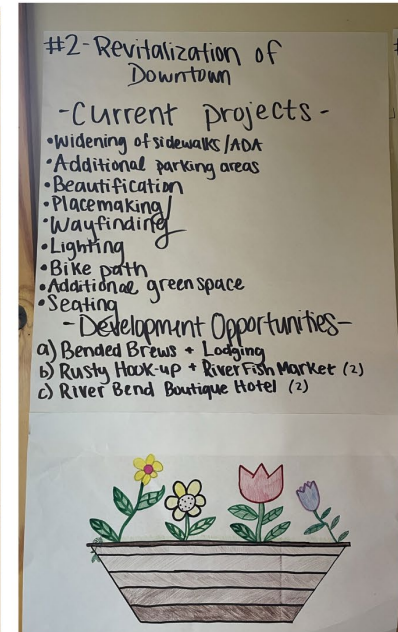 #2-Revitalization of
Downtown
-Current projects-
•Widening of sidewalks/ADA
•Additional parking areas
•Beautification
•Placemaking/
•Wayfinding
•Lighting
•Bike path
•Additional greenspace
•Seating
-Development Opportunities-
a) Bended Brews + Lodging
b) Rusty Hook-up + River Fish Market (2)
c) River Bend Boutique Hotel (2)